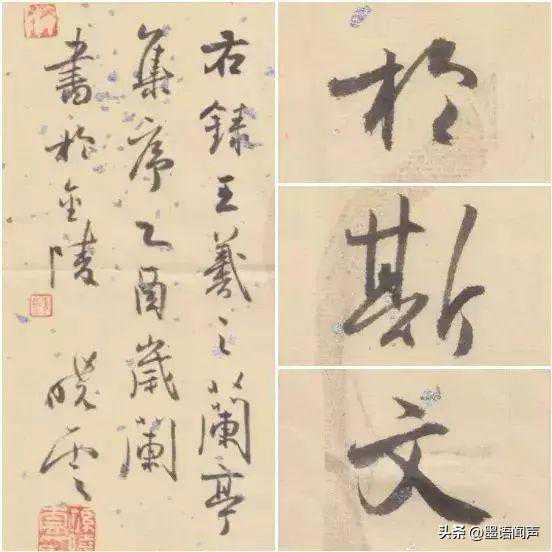 右錄王羲之蘭亭
集序乙酉歲闌
書於金陵 曉雲
於
斯
文
头条 @墨语闻声